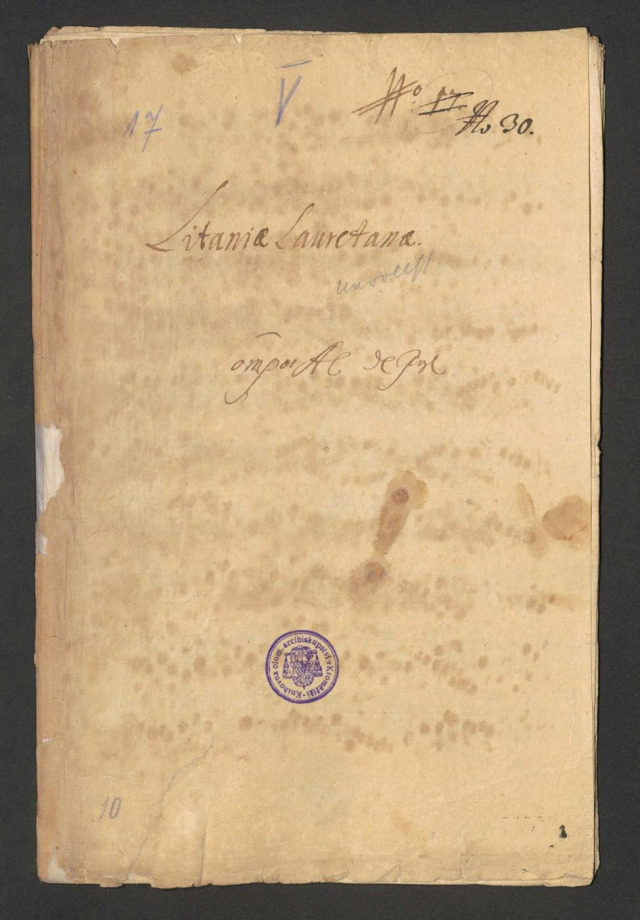 17 V No. 17 No 30.
Litaniæ Lauretanæ.
unvollst
Knihovna olom. arcibiskupství v Kroměříži
10
1